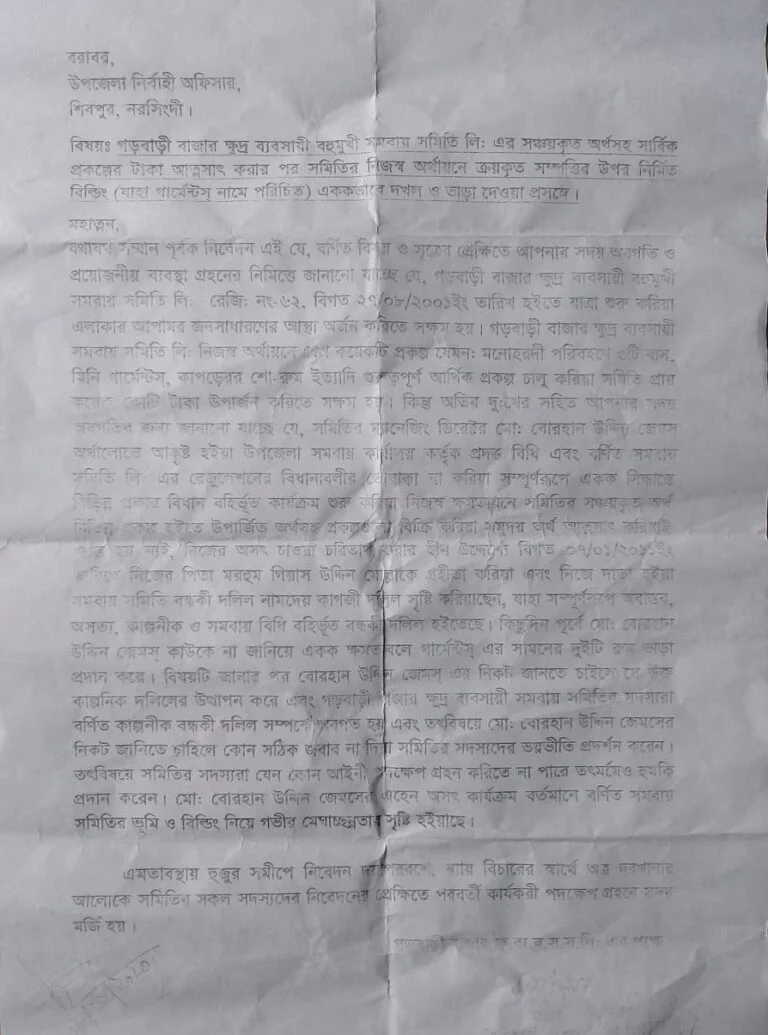 বরাবর,
উপজেলা নির্বাহী অফিসার,
শিবপুর, নরসিংদী।
বিষয়ঃ গড়বাড়ী বাজার ক্ষুদ্র ব্যবসায়ী বহুমুখী সমবায় সমিতি লি: এর সঞ্চয়কৃত অর্থসহ সার্বিক
প্রকল্পের টাকা আত্নসাৎ করার পর সমিতির নিজস্ব অর্থায়নে ক্রয়কৃত সম্পত্তির উপর নির্মিত
বিল্ডিং (যাহা গার্মেন্টস্ নামে পরিচিত) এককভাবে দখল ও ভাড়া দেওয়া প্রসঙ্গে।
মহাত্নন,
যথাযথ সম্মান পূর্বক নিবেদন এই যে, বর্ণিত বিষয় ও সূত্রের প্রেক্ষিতে আপনার সদয় অবগতি ও
প্রয়োজনীয় ব্যবস্থা গ্রহনের নিমিত্তে জানানো যাচ্ছে যে, গড়বাড়ী বাজার ক্ষুদ্র ব্যবসায়ী বহুমুখী
সমবায় সমিতি লি: রেজি: নং-৬২, বিগত ২৭/০৮/২০০১ইং তারিখ হইতে যাত্রা শুরু করিয়া
এলাকার আপামর জনসাধারণের আস্থা অর্জন করিতে সক্ষম হয়। গড়বাড়ী বাজার ক্ষুদ্র ব্যবসায়ী
সমবায় সমিতি লি: নিজস্ব অর্থায়নে বেশ কয়েকটি প্রকল্প যেমন: মনোহরদী পরিবহণে ৩টি বাস,
মিনি গার্মেন্টস্, কাপড়েরর শো-রুম ইত্যাদি গুরুত্বপূর্ণ আর্থিক প্রকল্প চালু করিয়া সমিতি প্রায়
কয়েক কোটি টাকা উপার্জন করিতে সক্ষম হয়। কিন্তু অতিব দু:খের সহিত আপনার সদয়
অবগতির জন্য জানানো যাচ্ছে যে, সমিতির ম্যানেজিং ডিরেক্টর মো: বোরহান উদ্দিন জেমস্
অর্থলোভে আকৃষ্ট হইয়া উপজেলা সমবায় কার্যালয় কর্তৃক প্রদত্ত বিধি এবং বর্ণিত সমবায়
সমিতি লি: এর রেগুলেশনের বিধানাবলীর তোয়াক্কা না করিয়া সম্পূর্ণরূপে একক সিদ্ধান্তে
বিভিন্ন প্রকার বিধান বহির্ভূত কার্যক্রম শুরু করিয়া নিজস্ব ক্ষমতায়নে সমিতির সঞ্চয়কৃত অর্থ
বিভিন্ন প্রকল্প হইতে উপার্জিত অর্থসহ প্রকল্পগুলো বিক্রি করিয়া সমুদয় অর্থ আত্নসাৎ করিয়াই
ক্ষান্ত হয় নাই, নিজের অসৎ চাওয়া চরিতার্থ করার হীন উদ্দেশ্যে বিগত ০৭/০১/২০১১ইং
তারিখে নিজের পিতা মরহুম গিয়াস উদ্দিন মোল্লাকে গ্রহীতা করিয়া এবং নিজে দাতা হইয়া
সমবায় সমিতি বন্ধকী দলিল নামদেয় কাগজী দলিল সৃষ্টি করিয়াছেন, যাহা সম্পূর্ণরূপে অবান্তব,
অসত্য, কাল্পনীক ও সমবায় বিধি বহির্ভূত বন্ধকী দলিল হইতেছে। কিছুদিন পূর্বে মো: বোরহান
উদ্দিন জেমস্ কাউকে না জানিয়ে একক ক্ষমতাবলে গার্মেন্টস্ এর সামনের দুইটি রুম ভাড়া
প্রদান করে। বিষয়টি জানার পর বোরহান উদ্দিন জেমস্ এর নিকট জানতে চাইলে সে উক্ত
কাল্পনিক দলিলের উত্থাপন করে এবং গড়বাড়ী বাজার ক্ষুদ্র ব্যবসায়ী সমবায় সমিতির সদস্যরা
বর্ণিত কাল্পনীক বন্ধকী দলিল সম্পর্কে অবগত হয় এবং তৎবিষয়ে মো: বোরহান উদ্দিন জেমসের
নিকট জানিতে চাহিলে কোন সঠিক জবাব না দিয়া সমিতির সদস্যদের ভয়ভীতি প্রদর্শন করেন।
তৎবিষয়ে সমিতির সদস্যরা যেন কোন আইনী পদক্ষেপ গ্রহন করিতে না পারে তৎমর্মেও হুমকি
প্রদান করেন। মো: বোরহান উদ্দিন জেমসের এহেন অসৎ কার্যক্রম বর্তমানে বর্ণিত সমবায়
সমিতির ভূমি ও বিল্ডিং নিয়ে গভীর মেঘাচ্ছন্নতার সৃষ্টি হইয়াছে।
এমতাবস্থায় হুজুর সমীপে নিবেদন দয়াপরবশে, ন্যায় বিচারের স্বার্থে অত্র দরখাস্তের
আলোকে সমিতির সকল সদস্যদের নিবেদনের প্রেক্ষিতে পরবর্তী কার্যকরী পদক্ষেপ গ্রহনে সদয়
মর্জি হয়।
গড়বাড়ী বাজার ক্ষু ব্য ব স স লি: এর পক্ষে